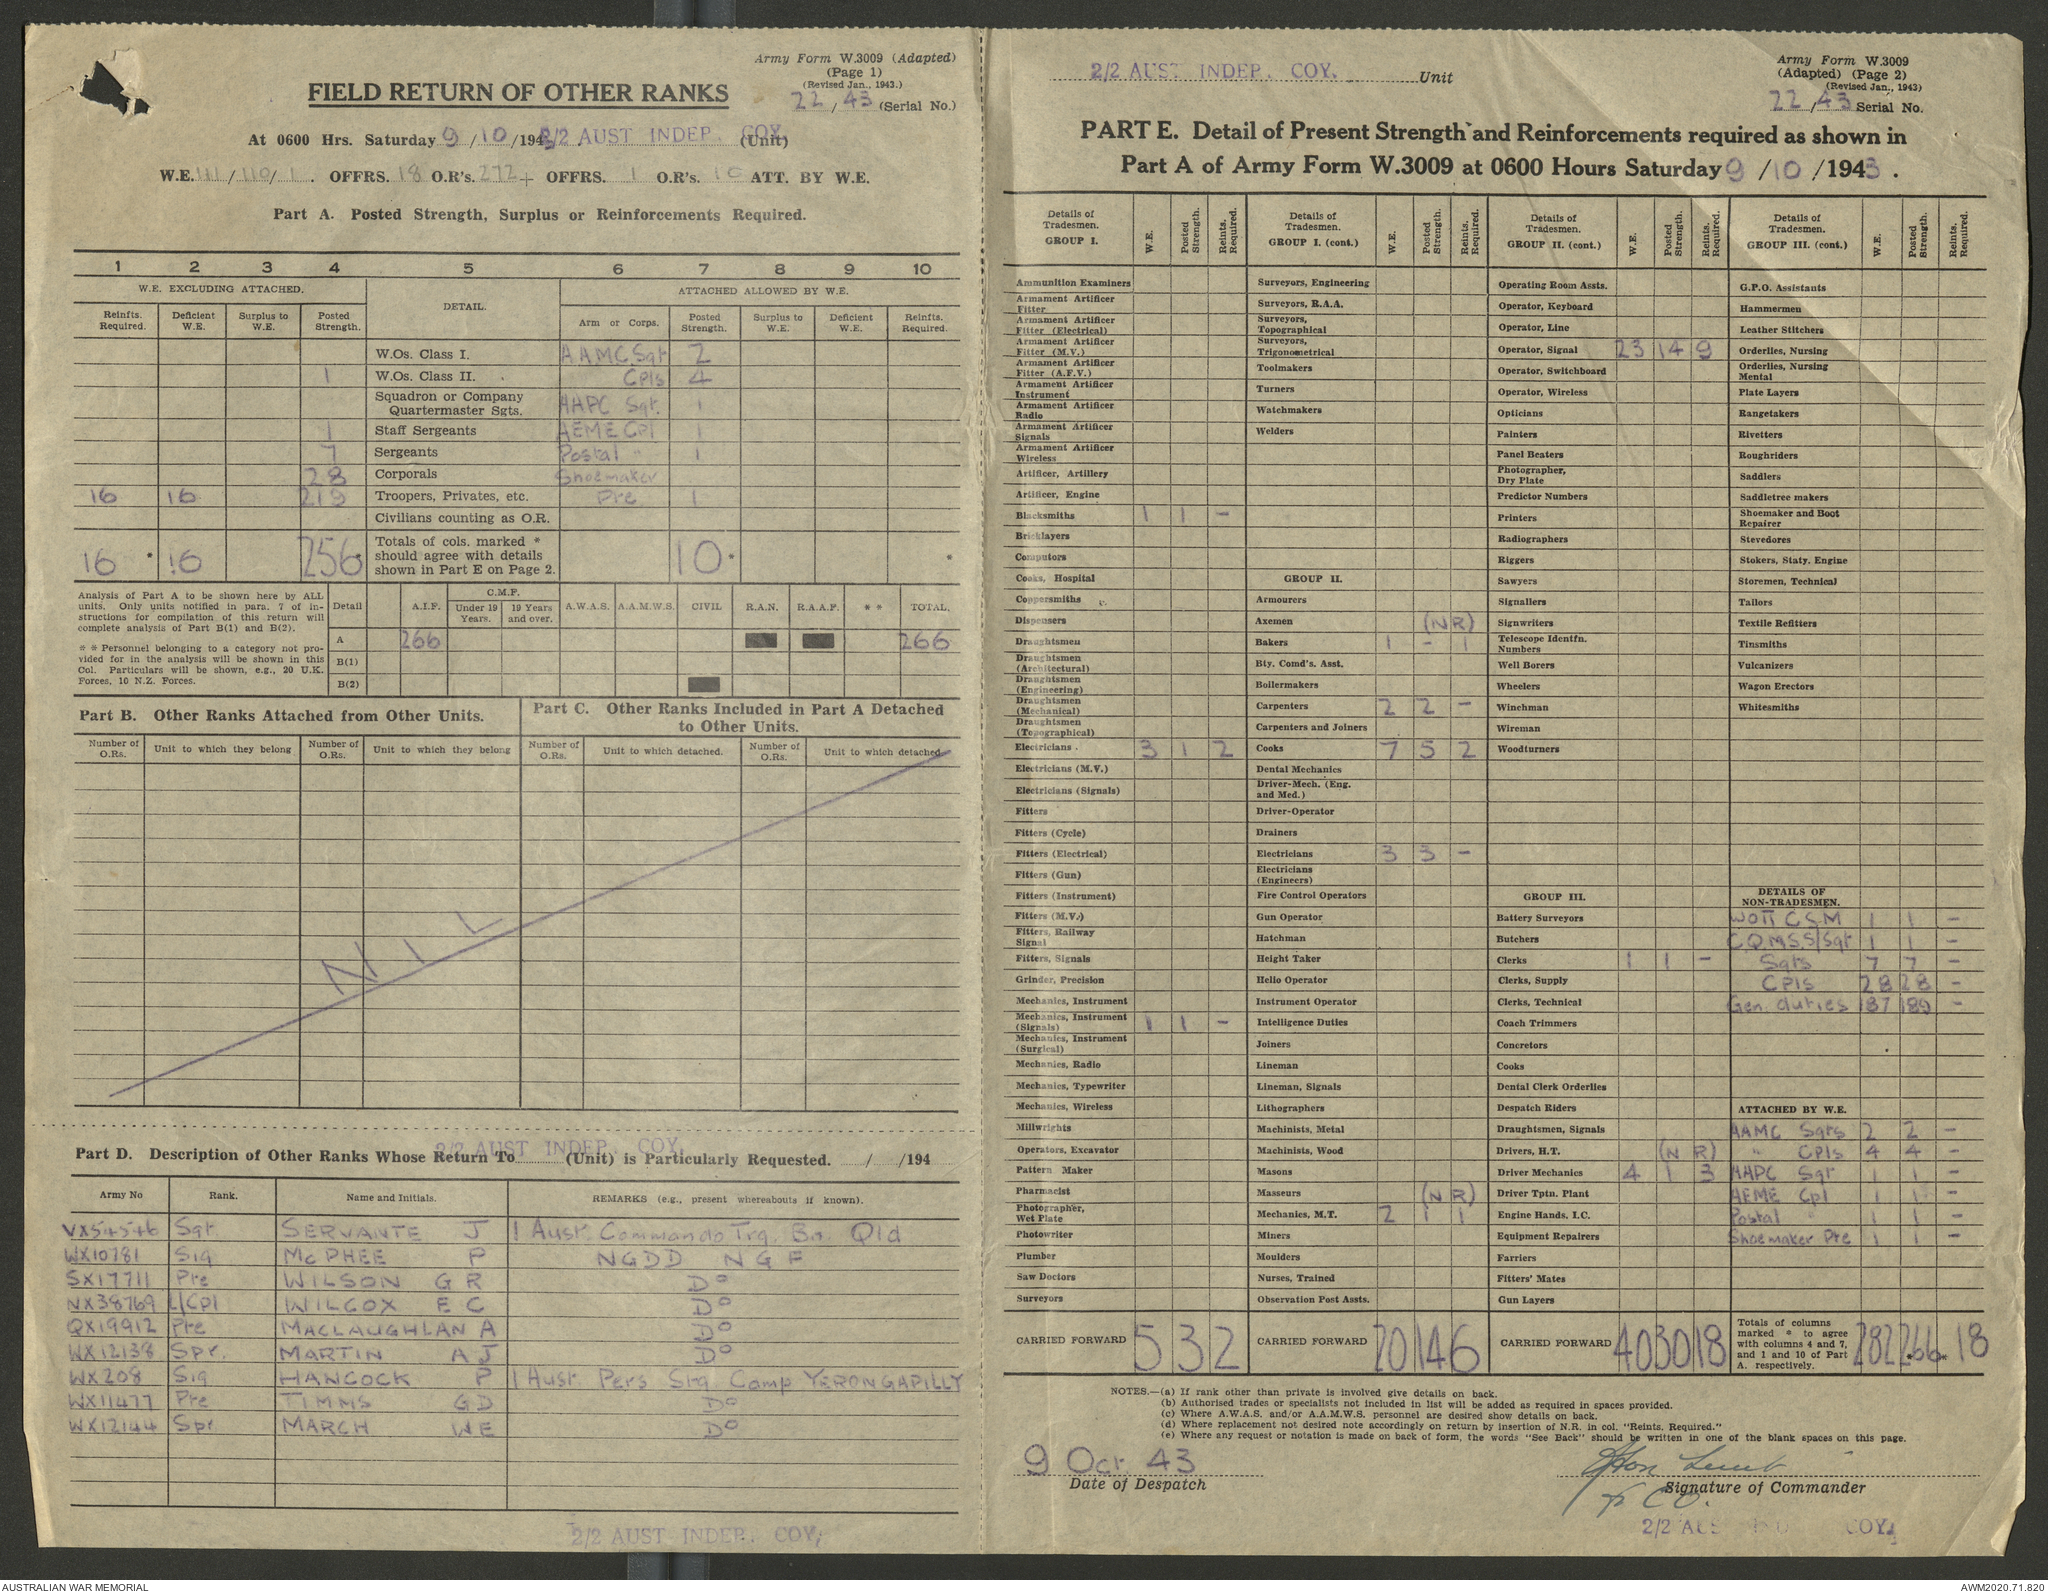 Army Form W.3009 (Adapted)
(Page 1)
(Revised Jan., 1943.)
FIELD RETURN OF OTHER RANKS
22/43 (Serial No.)
At 0600 Hrs. Saturday 9/10/1943 2/2 AUST INDEP. COY. (Unit)
W.E. 111/110/1. OFFRS. 18 O.R's. 272 + OFFRS. 1 O.R's. 10 ATT. BY W.E.
Part A. Posted Strength, Surplus or Reinforcements Required.
1 2 3 4 5 6 7 8 9 10
W.E. EXCLUDING ATTACHED. DETAIL. ATTACHED ALLOWED BY W.E.
Reinfts. Required. Deficient W.E. Surplus to W.E. Posted Strength. Arm or Corps. Posted Strength. Surplus to W.E. Deficient W.E. Reinfts. Required.
W.Os. Class I. AAMC Sgt 2
1 W.Os. Class II. Cpls 4
Squadron or Company Quartermaster Sgts. AAPC Sgt. 1
1 Staff Sergeants AEME Cpl 1
7 Sergeants Postal " 1
28 Corporals Shoemaker
16 16 219 Troopers, Privates, etc. Pte 1
Civilians counting as O.R.
16 * 16 256 * Totals of cols. marked * should agree with details shown in Part E on Page 2. 10 * *
Analysis of Part A to be shown here by ALL units. Only units notified in para. 7 of instructions for compilation of this return will complete analysis of Part B(1) and B(2).
* * Personnel belonging to a category not provided for in the analysis will be shown in this Col. Particulars will be shown, e.g., 20 U.K. Forces, 10 N.Z. Forces.
Detail A.I.F. C.M.F. Under 19 Years. 19 Years and over. A.W.A.S. A.A.M.W.S. CIVIL R.A.N. R.A.A.F. * * TOTAL.
A 266 266
B(1)
B(2)
Part B. Other Ranks Attached from Other Units.
Part C. Other Ranks Included in Part A Detached to Other Units.
Number of O.Rs. Unit to which they belong Number of O.Rs. Unit to which they belong Number of O.Rs. Unit to which detached. Number of O.Rs. Unit to which detached.
NIL
2/2 AUST INDEP. COY.
Part D. Description of Other Ranks Whose Return To (Unit) is Particularly Requested. / /194
Army No Rank. Name and Initials. REMARKS (e.g., present whereabouts if known).
VX54546 Sgt SERVANTE J 1 Aust. Commando Trg. Bn. Qld
WX10781 Sig McPHEE P NGDD NGF
SX17711 Pte WILSON G R Do
NX38769 L/Cpl WILCOX E C Do
QX19912 Pte MACLAUGHLAN A Do
WX12138 Spr. MARTIN A J Do
WX208 Sig HANCOCK P 1 Aust Pers Stg Camp YERONGAPILLY
WX11477 Pte TIMMS G D Do
WX12144 Spr MARCH W E Do
2/2 AUST INDEP. COY.
2/2 AUST INDEP. COY. Unit
Army Form W.3009
(Adapted) (Page 2)
(Revised Jan., 1943)
22/43 Serial No.
PART E. Detail of Present Strength and Reinforcements required as shown in
Part A of Army Form W.3009 at 0600 Hours Saturday 9/10/1943.
Details of Tradesmen. GROUP I. W.E. Posted Strength. Reints. Required.
Ammunition Examiners
Armament Artificer Fitter
Armament Artificer Fitter (Electrical)
Armament Artificer Fitter (M.V.)
Armament Artificer Fitter (A.F.V.)
Armament Artificer Instrument
Armament Artificer Radio
Armament Artificer Signals
Armament Artificer Wireless
Artificer, Artillery
Artificer, Engine
Blacksmiths 1 1 -
Bricklayers
Computors
Cooks, Hospital
Coppersmiths
Dispensers
Draughtsmen
Draughtsmen (Architectural)
Draughtsmen (Engineering)
Draughtsmen (Mechanical)
Draughtsmen (Topographical)
Electricians 3 1 2
Electricians (M.V.)
Electricians (Signals)
Fitters
Fitters (Cycle)
Fitters (Electrical)
Fitters (Gun)
Fitters (Instrument)
Fitters (M.V.)
Fitters, Railway Signal
Fitters, Signals
Grinder, Precision
Mechanics, Instrument
Mechanics, Instrument (Signals) 1 1 -
Mechanics, Instrument (Surgical)
Mechanics, Radio
Mechanics, Typewriter
Mechanics, Wireless
Millwrights
Operators, Excavator
Pattern Maker
Pharmacist
Photographer, Wet Plate
Photowriter
Plumber
Saw Doctors
Surveyors
CARRIED FORWARD 5 3 2
Details of Tradesmen. GROUP I. (cont.) W.E. Posted Strength. Reints. Required.
Surveyors, Engineering
Surveyors, R.A.A.
Surveyors, Topographical
Surveyors, Trigonometrical
Toolmakers
Turners
Watchmakers
Welders
GROUP II.
Armourers
Axemen (NR)
Bakers 1 - 1
Bty. Comd's. Asst.
Boilermakers
Carpenters 2 2 -
Carpenters and Joiners
Cooks 7 5 2
Dental Mechanics
Driver-Mech. (Eng. and Med.)
Driver-Operator
Drainers
Electricians 3 3 -
Electricians (Engineers)
Fire Control Operators
Gun Operator
Hatchman
Height Taker
Helio Operator
Instrument Operator
Intelligence Duties
Joiners
Lineman
Lineman, Signals
Lithographers
Machinists, Metal
Machinists, Wood
Masons
Masseurs (NR)
Mechanics, M.T. 2 1 1
Miners
Moulders
Nurses, Trained
Observation Post Assts.
CARRIED FORWARD 20 14 6
Details of Tradesmen. GROUP II. (cont.) W.E. Posted Strength. Reints. Required.
Operating Room Assts.
Operator, Keyboard
Operator, Line
Operator, Signal 23 14 9
Operator, Switchboard
Operator, Wireless
Opticians
Painters
Panel Beaters
Photographer, Dry Plate
Predictor Numbers
Printers
Radiographers
Riggers
Sawyers
Signallers
Signwriters
Telescope Identfn. Numbers
Well Borers
Wheelers
Winchman
Wireman
Woodturners
GROUP III.
Battery Surveyors
Butchers
Clerks 1 1 -
Clerks, Supply
Clerks, Technical
Coach Trimmers
Concretors
Cooks
Dental Clerk Orderlies
Despatch Riders
Draughtsmen, Signals
Drivers, H.T. (NR)
Driver Mechanics 4 1 3
Driver Tptn. Plant
Engine Hands, I.C.
Equipment Repairers
Farriers
Fitters' Mates
Gun Layers
CARRIED FORWARD 40 30 18
Details of Tradesmen. GROUP III. (cont.) W.E. Posted Strength. Reints. Required.
G.P.O. Assistants
Hammermen
Leather Stitchers
Orderlies, Nursing
Orderlies, Nursing Mental
Plate Layers
Rangetakers
Rivetters
Roughriders
Saddlers
Saddletree makers
Shoemaker and Boot Repairer
Stevedores
Stokers, Staty. Engine
Storemen, Technical
Tailors
Textile Refitters
Tinsmiths
Vulcanizers
Wagon Erectors
Whitesmiths
DETAILS OF NON-TRADESMEN.
WOII CSM 1 1 -
C.Q.M.S. S/Sgt 1 1 -
Sgts 7 7 -
Cpls 28 28 -
Gen. duties 187 189 -
ATTACHED BY W.E.
AAMC Sgts 2 2 -
" Cpls 4 4 -
AAPC Sgt 1 1 -
AEME Cpl 1 1 -
Postal " 1 1 -
Shoemaker Pte 1 1 -
Totals of columns marked * to agree with columns 4 and 7, and 1 and 10 of Part A. respectively. 282 266 18
NOTES.—(a) If rank other than private is involved give details on back.
(b) Authorised trades or specialists not included in list will be added as required in spaces provided.
(c) Where A.W.A.S. and/or A.A.M.W.S. personnel are desired show details on back.
(d) Where replacement not desired note accordingly on return by insertion of N.R. in col. "Reints. Required."
(e) Where any request or notation is made on back of form, the words "See Back" should be written in one of the blank spaces on this page.
9 Oct. 43
Date of Despatch
Lieut
Signature of Commander
CO.
2/2 AUS IND COY.
AUSTRALIAN WAR MEMORIAL
AWM2020.71.820